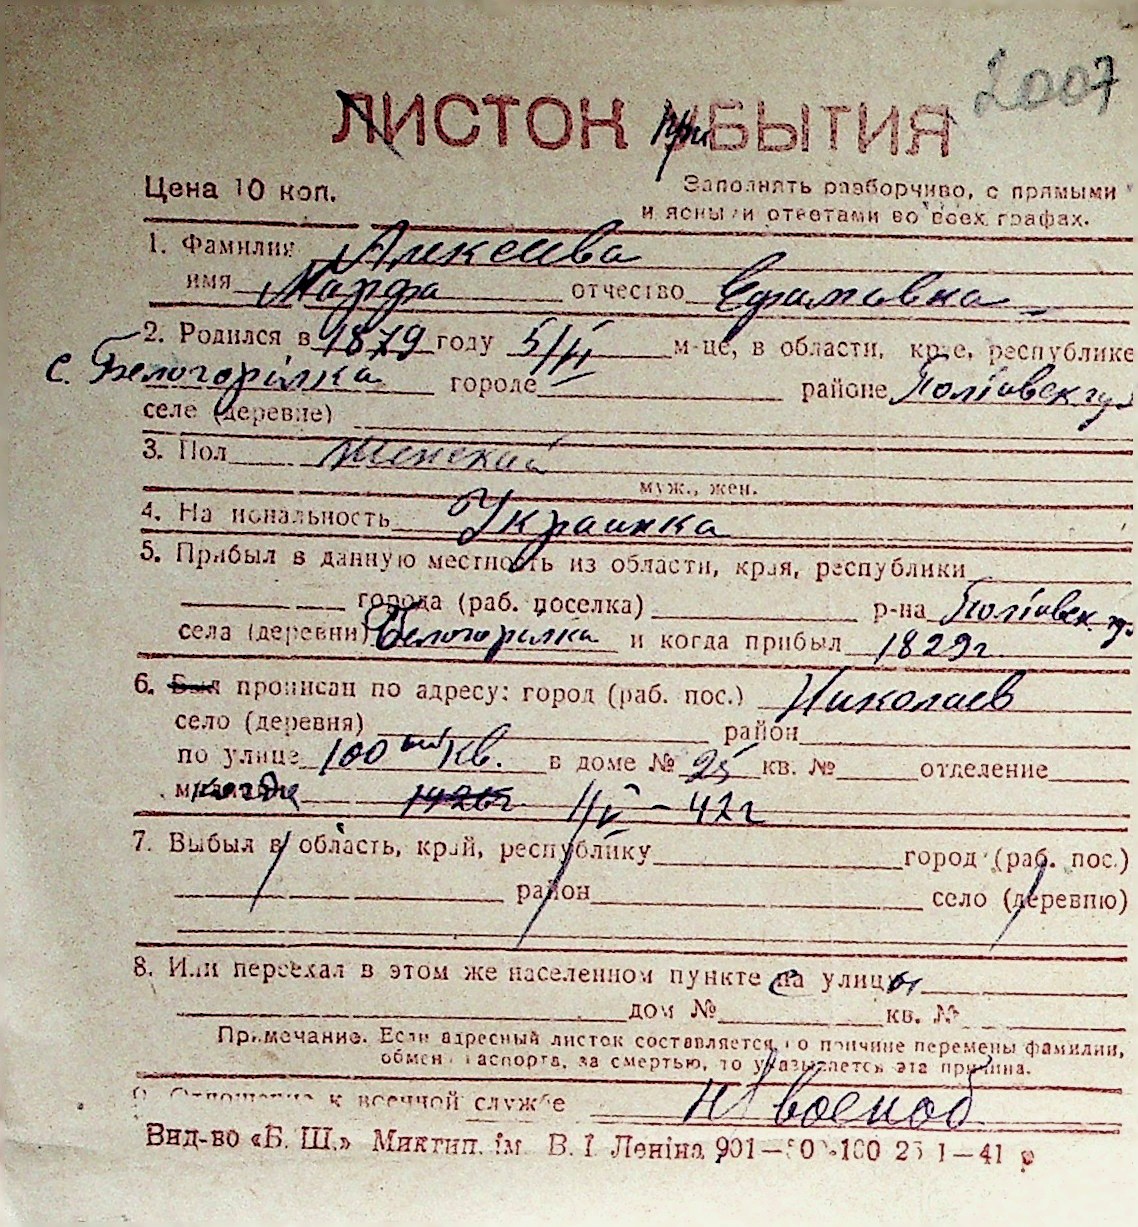 2007
ЛИСТОК При БЫТИЯ
Цена 10 коп. Заполнять разборчиво, с прямыми
и ясными ответами во всех графах.
1. Фамилия Алексеева
имя Марфа отчество Ефимовна
2. Родился в 1879 году 5/II м-це, в области, крае, республике
с. Белогорілка городе районе Полтавск гу
селе (деревне)
3. Пол женский
муж., жен.
4. Национальность Украинка
5. Прибыл в данную местность из области, края, республики
города (раб. поселка) р-на Полтавск. гу
села (деревни) Белогорилка и когда прибыл 1829г.
6. Был прописан по адресу: город (раб. пос.) Николаев
село (деревня) район
по улице 100 ной кв. в доме № 25 кв. № отделение
когда 1926г. 42г
7. Выбыл в область, край, республику город (раб. пос.)
район село (деревню)
8. Или переехал в этом же населенном пункте с улицы
дом № кв. №
Примечание. Если адресный листок составляется по причине перемены фамилии,
обмена паспорта, за смертью, то указывается эта причина.
9. Отношение к военной службе н/военоб
Вид-во «Б. Ш.» Миктип. ім. В. І. Леніна 901— 100 25 I—41 р